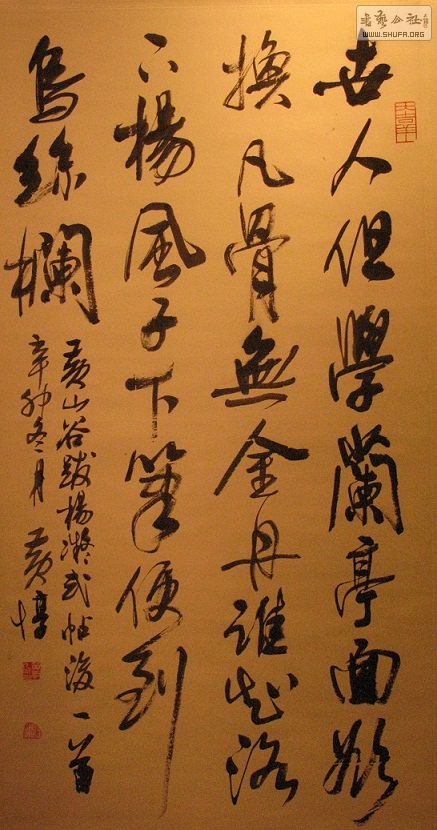 世人但學蘭亭面欲
換凡骨無金丹誰知洛
下楊風子下筆便到
烏絲欄
黃山谷跋楊凝式帖後一首
辛卯冬月 黃惇
書藝公社
WWW.SHUFA.ORG